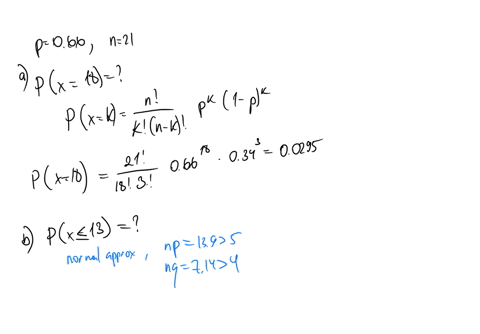 p=0.66, n=21
a) P(x=18)=?
P(x=k)= n!/k!(n-k)! p^k (1-p)^k
P(x=18) = 21!/18!3! 0.66^18 · 0.34^3 = 0.0295
b) P(x≤13)=?
normal approx, np=13.9>5
nq=7.14>4